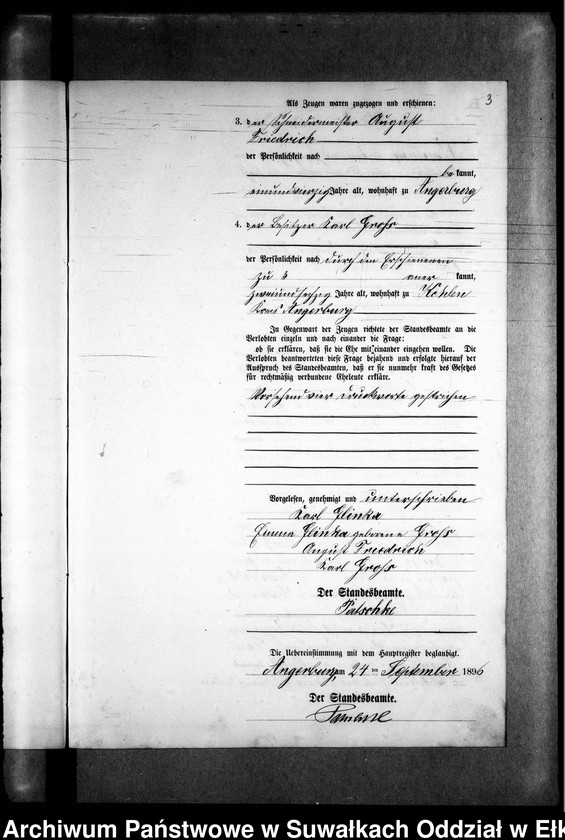 3
Als Zeugen waren zugezogen und erschienen:
3. der Schneidermeister August
Friedrich
der Persönlichkeit nach
be kannt,
einundvierzig Jahre alt, wohnhaft zu Angerburg
4. der Besitzer Karl Groß
der Persönlichkeit nach durch den Erschienenen
zu 3 aner kannt,
zweiundsechzig Jahre alt, wohnhaft zu Köhlen
Kreis Angerburg
In Gegenwart der Zeugen richtete der Standesbeamte an die
Verlobten einzeln und nach einander die Frage:
ob sie erklären, daß sie die Ehe mit einander eingehen wollen. Die
Verlobten beantworteten diese Frage bejahend und erfolgte hierauf der
Ausspruch des Standesbeamten, daß er sie nunmehr kraft des Gesetzes
für rechtmäßig verbundene Eheleute erkläre.
Vorstehend vier Druckworte gestrichen
Vorgelesen, genehmigt und unterschrieben
Karl Glinka
Emma Glinka geborene Groß
August Friedrich
Karl Groß
Der Standesbeamte.
Patschke
Die Uebereinstimmung mit dem Hauptregister beglaubigt.
Angerburg am 24 ten September 1896
Der Standesbeamte.
Archiwum Państwowe w Suwałkach Oddział w Ełk